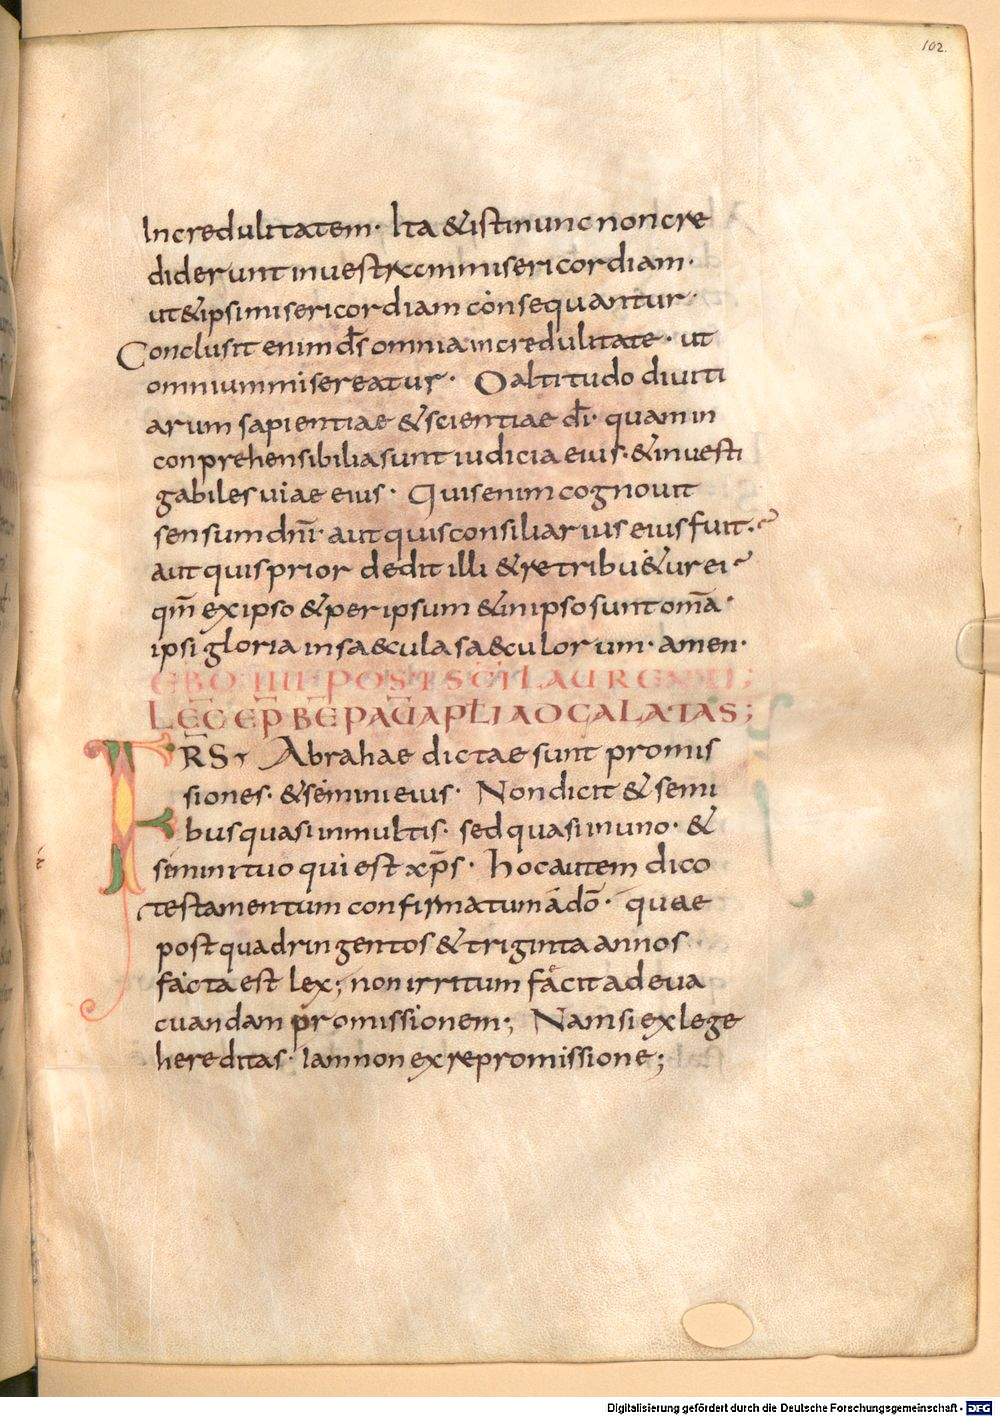 102.
Incredulitatem· Ita &istinunc noncre
diderunt inuestrammisericordiam·
ut&ipsimisericordiam consequantur·
Conclusit enim d̄s omnia incredulitate· ut
omniummisereatur· O altitudo diuiti
arum sapientiae &scientiae d̄i· quam in
conprehensibilia sunt iudicia eius·&inuesti
gabiles uiae eius· Quis enim cognouit
sensum dn̄i· aut quis consiliarius eius fuit·
aut quis prior dedit illi &retribu&ur ei
qm̄ ex ipso &per ipsum &in ipso sunt om̄a·
ipsi gloria in saecula saeculorum· amen·
EBD IIII POST SC̄I LAURENTII;
LEC̄ EP̄ BĒ PAŪ APLI AD GALATAS;
FR̄S· Abrahae dictae sunt promis
siones· &semini eius· Non dicit & semi
bus quasi in multis· sed quasi in uno· &
semini tuo qui est xp̄s· hoc autem dico
testamentum confirmatum ádō· quae
post quadringentos & triginta annos
facta est lex; non irritum facit adeua
cuandam promissionem·, Nam si ex lege
hereditas· Iam non ex repromissione;
Digitalisierung gefördert durch die Deutsche Forschungsgemeinschaft - DFG